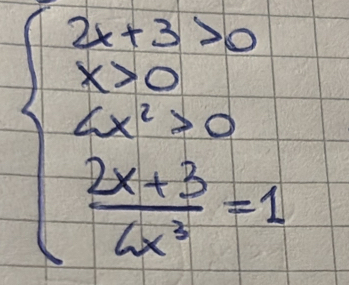 2x+3>0
x>0
4x²>0
2x+3
4x³ =1